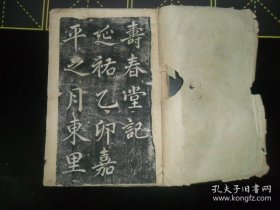 壽春堂記
延祐乙卯嘉
平之月東里
孔夫子旧书网